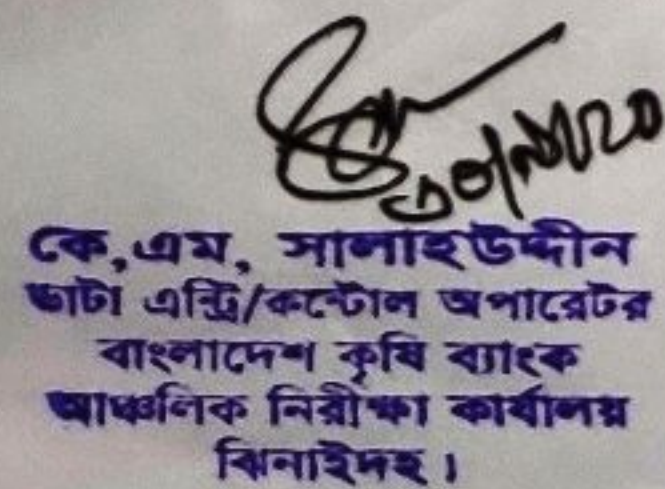 কে,এম, সালাহউদ্দীন
ডাটা এন্ট্রি/কন্টোল অপারেটর
বাংলাদেশ কৃষি ব্যাংক
আঞ্চলিক নিরীক্ষা কার্যালয়
ঝিনাইদহ।